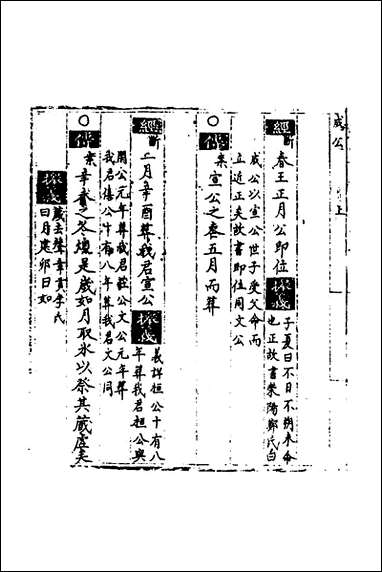 成公 上
經 斷 春王正月公即位 子夏曰不日不朔未命
也正故書榮陽鄭氏曰
成公以宣公世子受父命而
立近正矣故書即位用文公
傳
案 宣公之卒五月而葬
經 斷 二月辛酉葬我君宣公 義詳桓公十有八
年葬我君桓公與
閔公元年葬我君莊公文公元年葬
我君僖公十有八年葬我君文公同
傳
案 之冬燠是歲如月取冰以祭其藏虛矣
去聲 李氏
曰月建卯日如